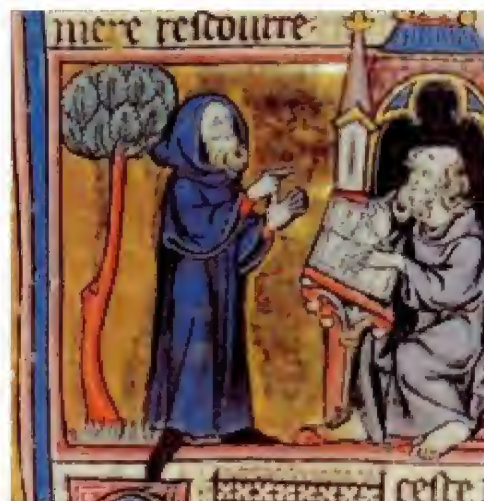 mere rescourre
ceste